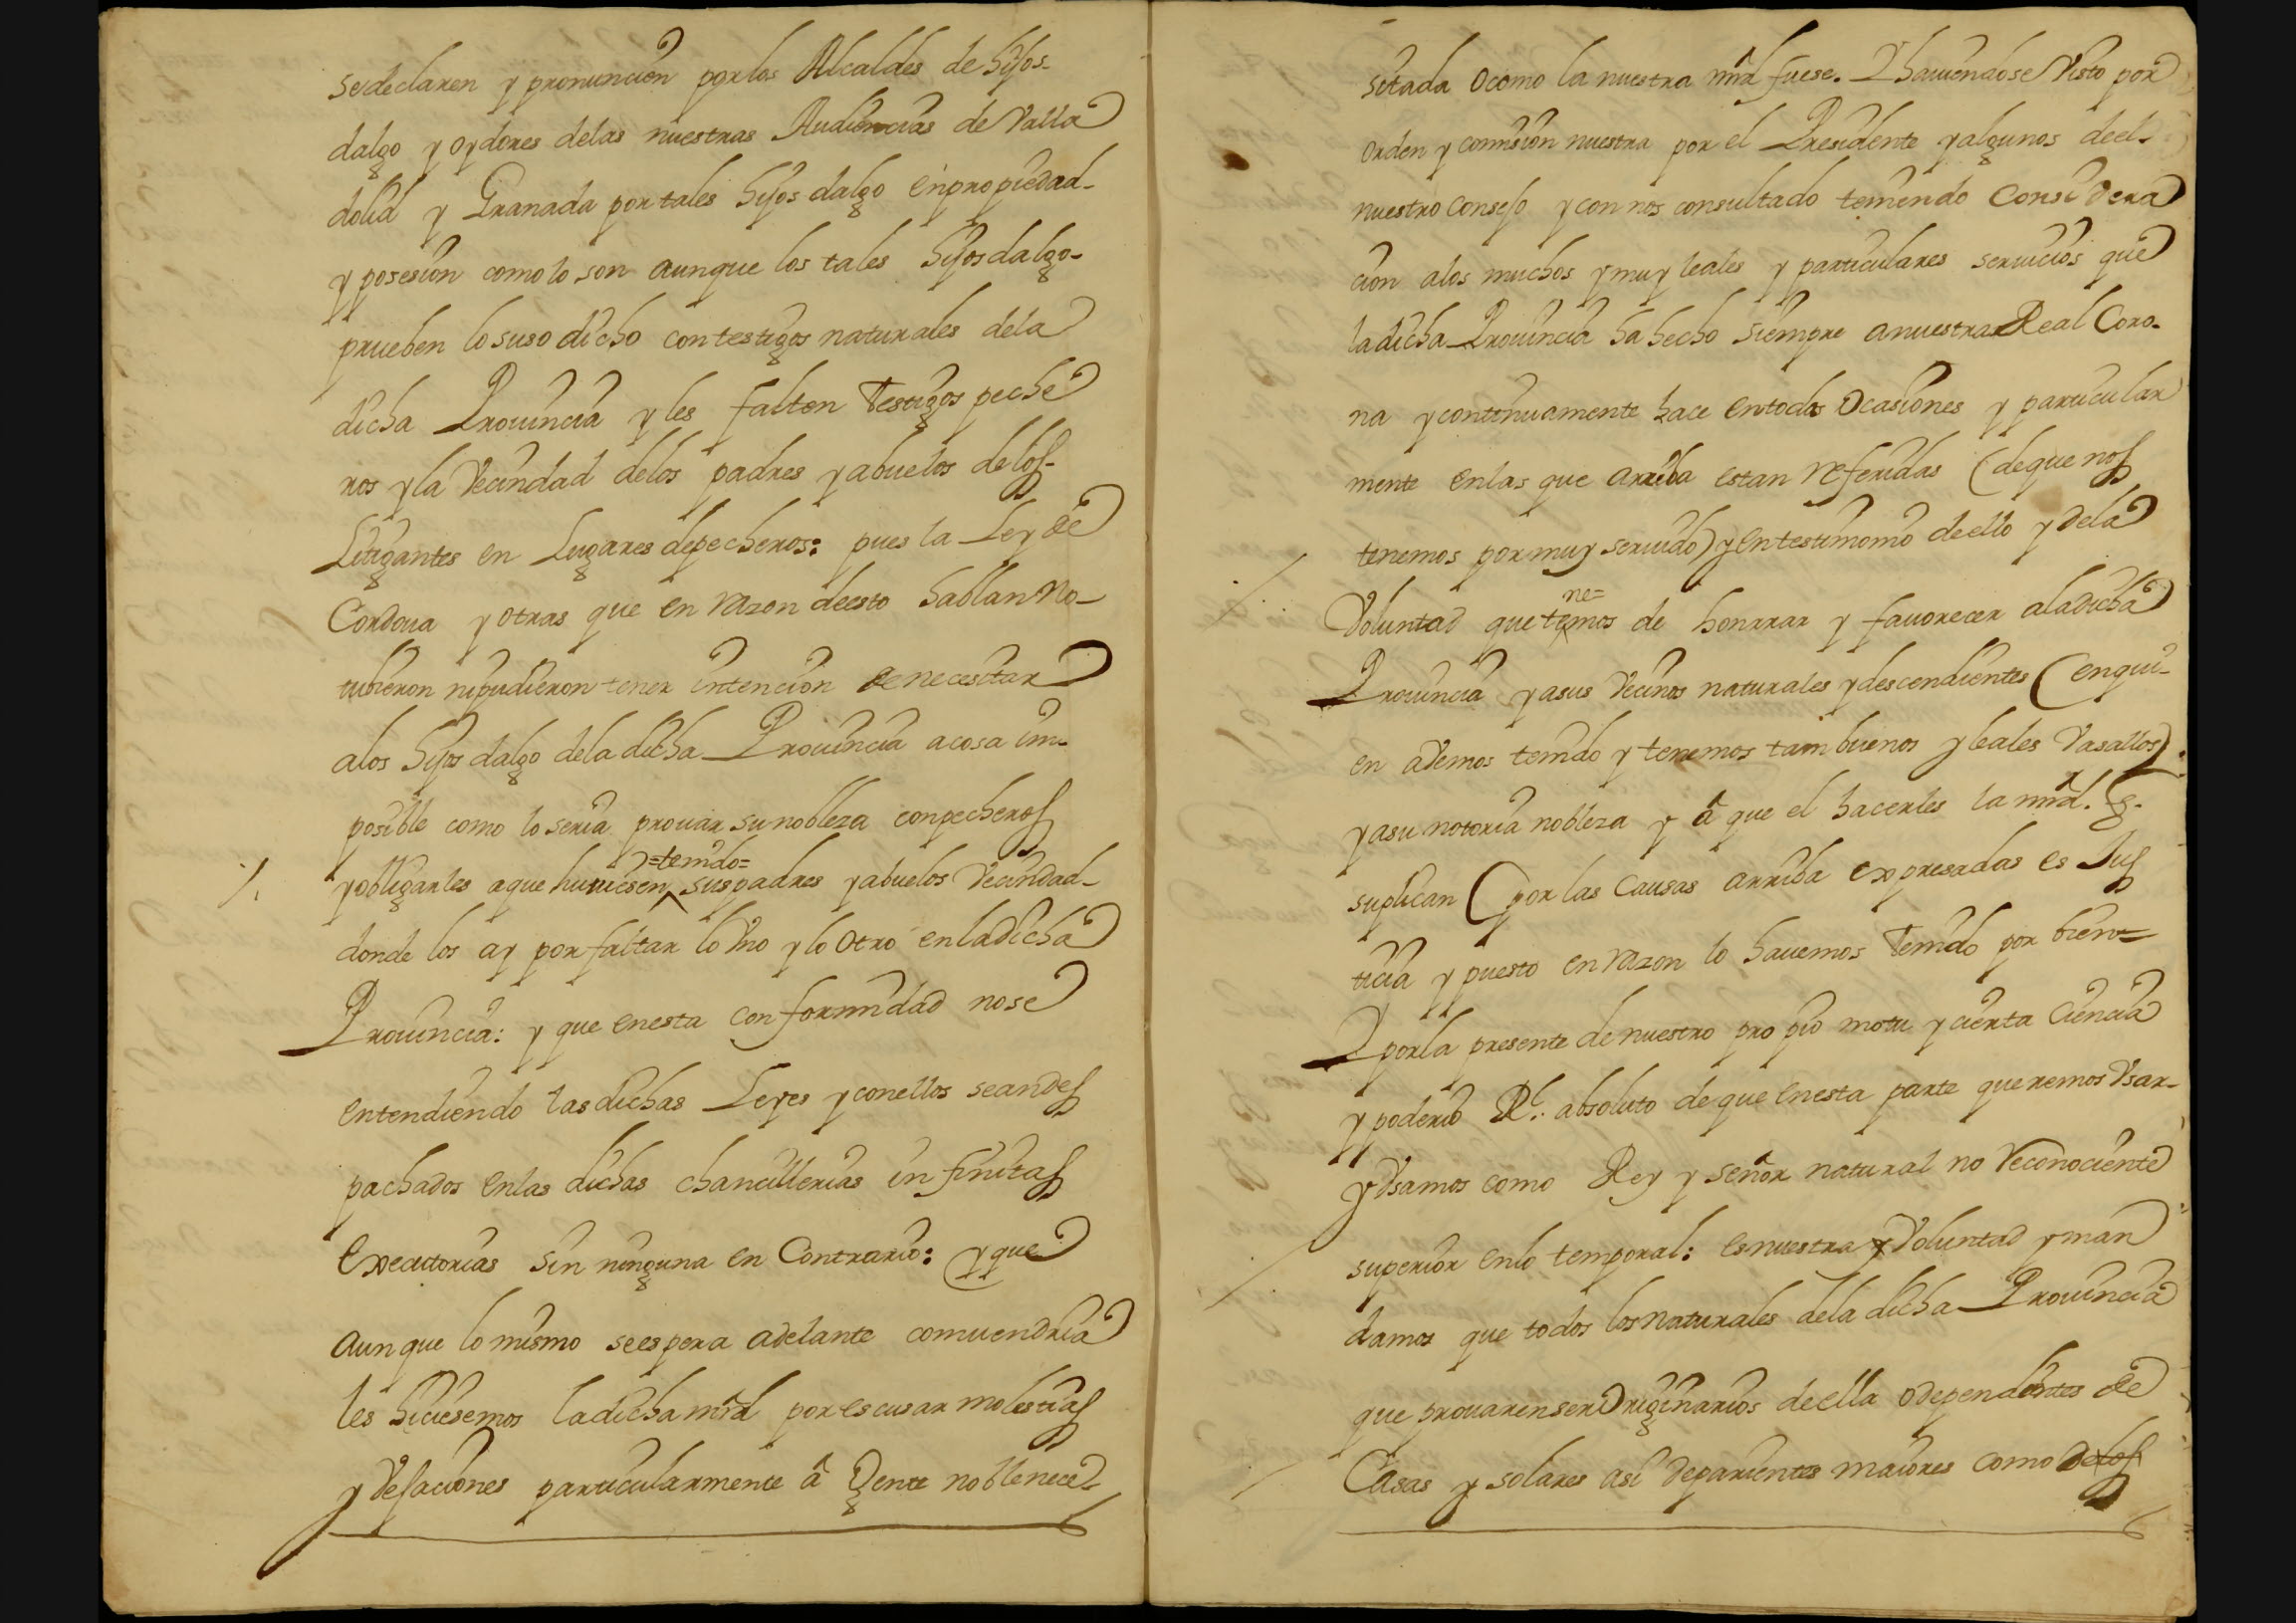 sedeclaren y pronuncien por los Alcaldes de hijos-
dalgo y oydores delas nuestras Audiencias de Valla
dolid y Granada por tales hijos dalgo enpropiedad-
y posesion como lo son aunque los tales hijos dalgo-
prueben lo suso dicho con testigos naturales dela
dicha Prouincia y les falten Testigos peche
ros y la Vecindad delos padres y abuelos de los-
Litigantes en Lugares depecheros: pues la Ley de
Cordoua y otras que en razon deesto hablan no-
tubieron nipudieron tener intencion de necesitar
alos hijos dalgo dela dicha Prouincia acosa im-
posible como lo seria prouar su nobleza conpecheros
=tenido=
yobligarles aque huuiesen suspadres yabuelos Vecindad-
donde los ay por faltar lo Vno y lo otro enladicha
Prouincia: y que enesta conformidad nose
entendiendo las dichas Leyes y conellos seandes
pachados enlas dichas chancillerias infinitas
executorias sin ninguna en Contrario: y que
aunque lo mismo se espera adelante comuendria
les hiciesemos ladicha mrd por escusar molestias
y Vejaciones particularmente â Gente noble nece-
sitada o como la nuestra mrd fuese. Y hauiendose Visto por
orden y comision nuestra por el Presidente y algunos deel-
nuestro Consejo y con nos consultado teniendo Considera
cion alos muchos y muy leales y particulares seruicios que
ladicha Prouincia ha hecho siempre anuestra Real Coro-
na y continuamente hace entodas Ocasiones y particular
mente enlas que arriba estan referidas (deque nos
tenemos por muy seruido) y entestimonio deello y dela
ne=
Voluntad que temos de honrrar y fauorecer aladicha
Prouincia yasus Vecinos naturales y descendientes (enqui-
en auemos tenido y tenemos tam buenos y leales Vasallos).
yasu notoria nobleza y â que el hacerles la mrd. q-
suplican (por las Causas arriba expresadas es Jus
ticia y puesto en razon lo hauemos Tenido por bien=
Y porla presente de nuestro propio motu y cierta Ciencia
y poderio Rl. absoluto de que enesta parte queremos Vsar-
y Vsamos como Rey y señor natural no reconociente
superior enlo temporal: es nuestra Voluntad y man
damos que todos los naturales dela dicha Prouincia
que prouaren ser Originarios deella o dependientes de
Casas y solares asi deparientes maiores como delos